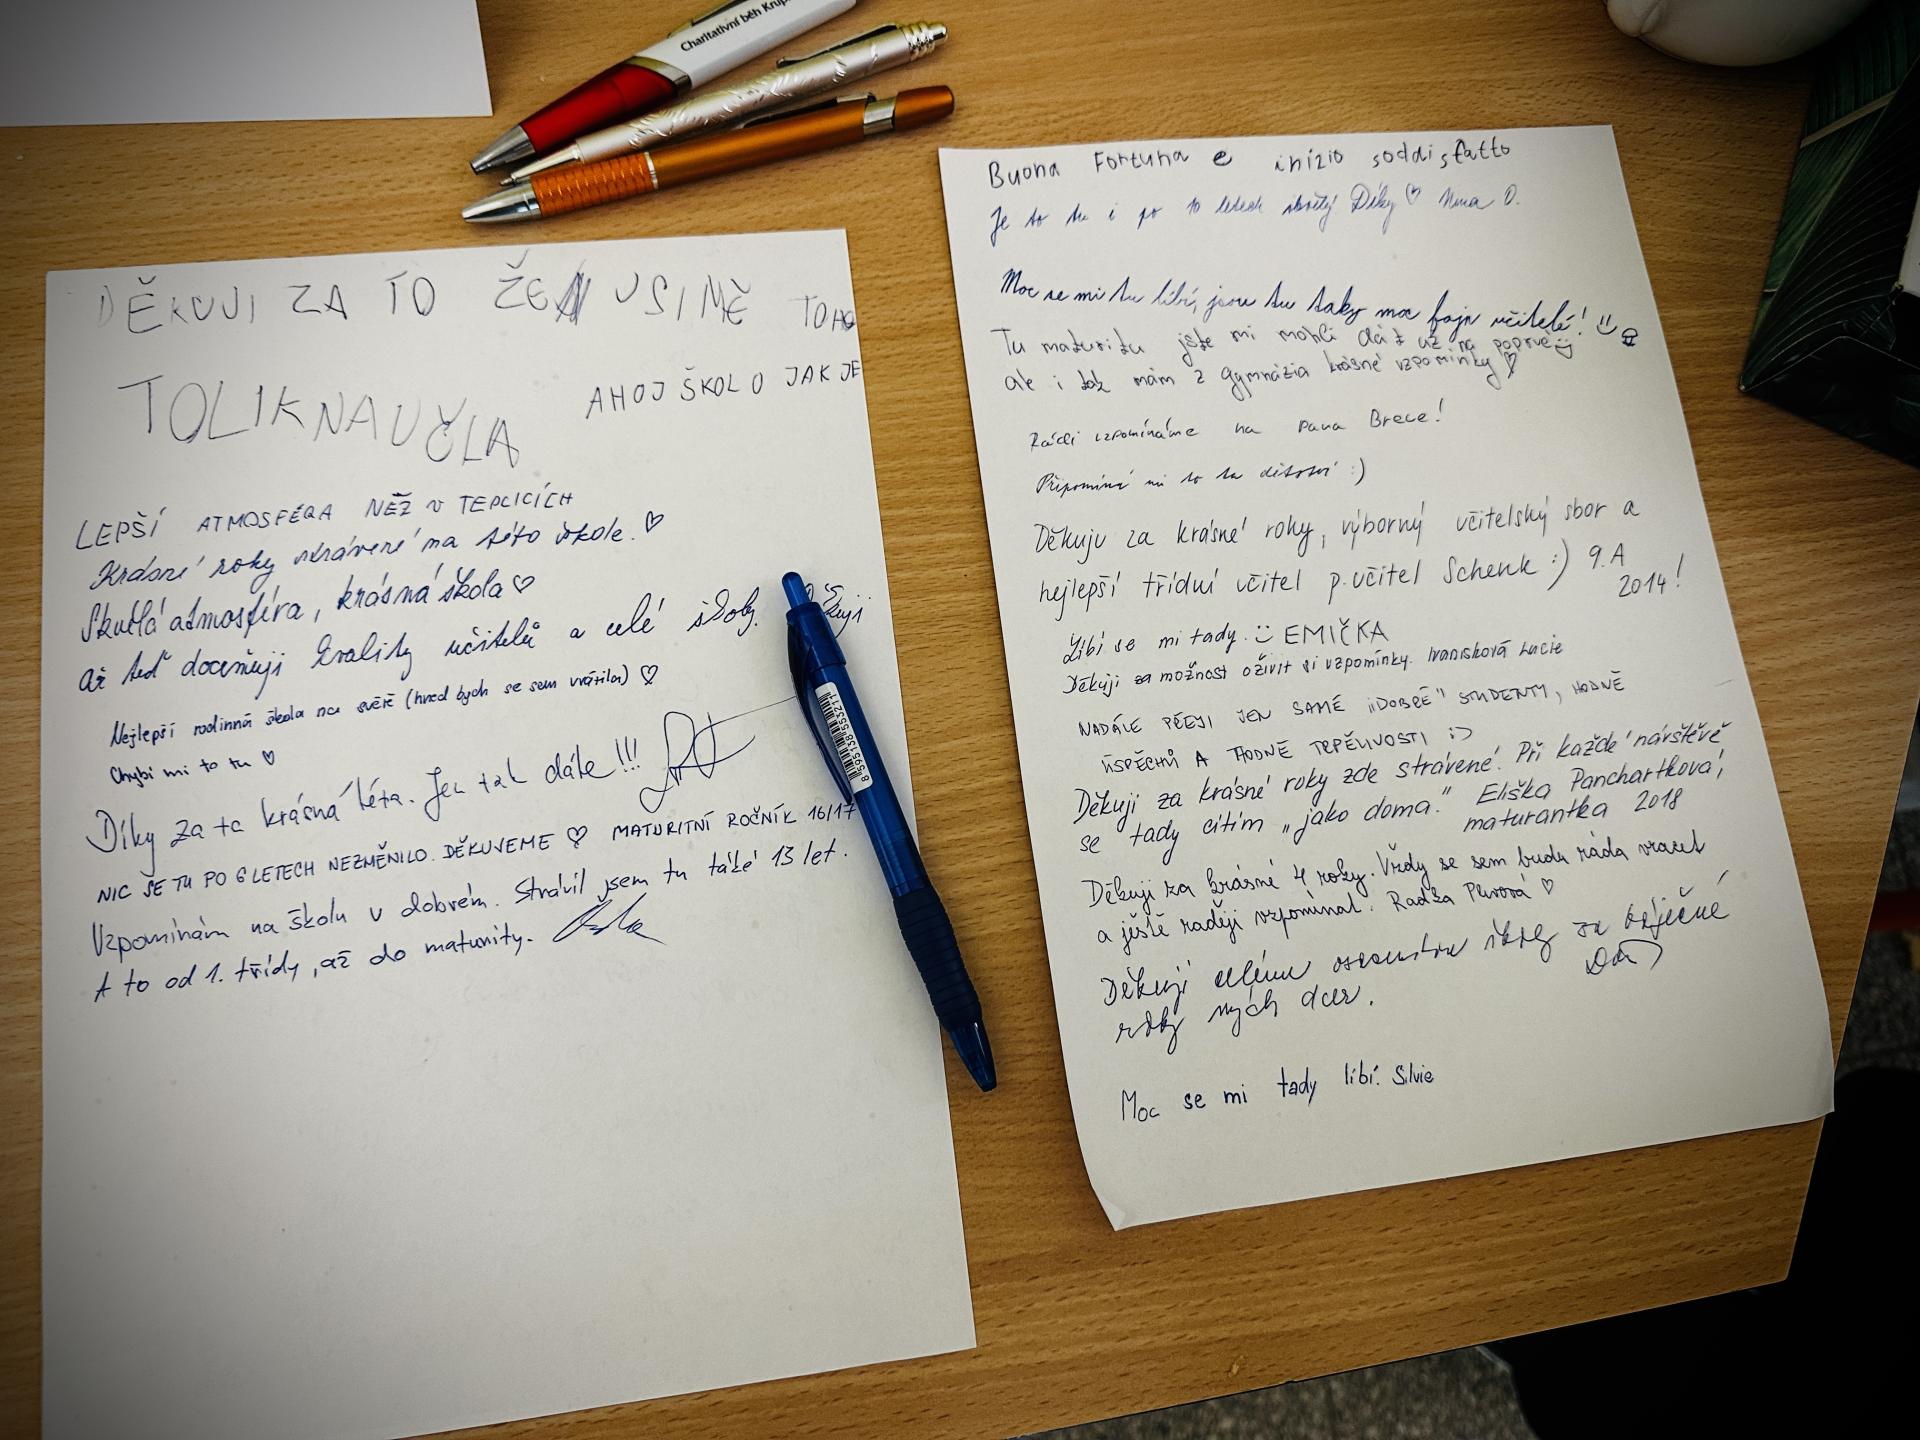 Charitativní běh Krup
DĚKUJI ZA TO ŽE USI MĚ TOHO
TOLIK NAUČLA
AHOJ ŠKOLO JAK JE
LEPŠÍ ATMOSFÉRA NEŽ V TEPLICÍCH
Krásné roky strávené na této škole. ♡
Skvělá atmosféra, krásná škola ♡
Až teď doceňuji kvality učitelů a celé školy.
Nejlepší rodinná škola na světě (hned bych se sem vrátila) ♡
Chybí mi to tu ♡
Díky za ta krásná léta. Jen tak dále!!!
NIC SE TU PO 6 LETECH NEZMĚNILO. DĚKUVEME ♡ MATURITNÍ ROČNÍK 16/17
Vzpomínám na školu v dobrém. Strávil jsem tu také 13 let.
A to od 1. třídy, až do maturity.
8595138553321
Buona Fortuna e inizio soddisfatto
Je to tu i po 10 letech skvělý Díky ♡ Nina O.
Moc se mi tu líbí, jsou tu taky moc fajn učitelé!
Tu maturitu jste mi mohli dát už na poprvé
ale i tak mám z gymnázia krásné vzpomínky ♡
Rádi vzpomínáme na pana Brece!
Připomíná mi to tu dětství :)
Děkuju za krásné roky, výborný učitelský sbor a
nejlepší třídní učitel p. učitel Schenk :) 9.A
2014!
Líbí se mi tady. EMIČKA
Děkuji za možnost oživit si vzpomínky. Lucie
NADÁLE PŘEJI JEN SAMÉ „DOBRÉ" STUDENTY, HODNĚ
ÚSPĚCHŮ A HODNĚ TRPĚLIVOSTI :)
Děkuji za krásné roky zde strávené. Při každé návštěvě
se tady cítím „jako doma." Eliška Panchartková,
maturantka 2018
Děkuji za krásné 4 roky. Vždy se sem budu ráda vracet
a ještě raději vzpomínat. Radka ♡
Děkuji celému školy za báječné
roky mých dcer.
Moc se mi tady líbí. Silvie